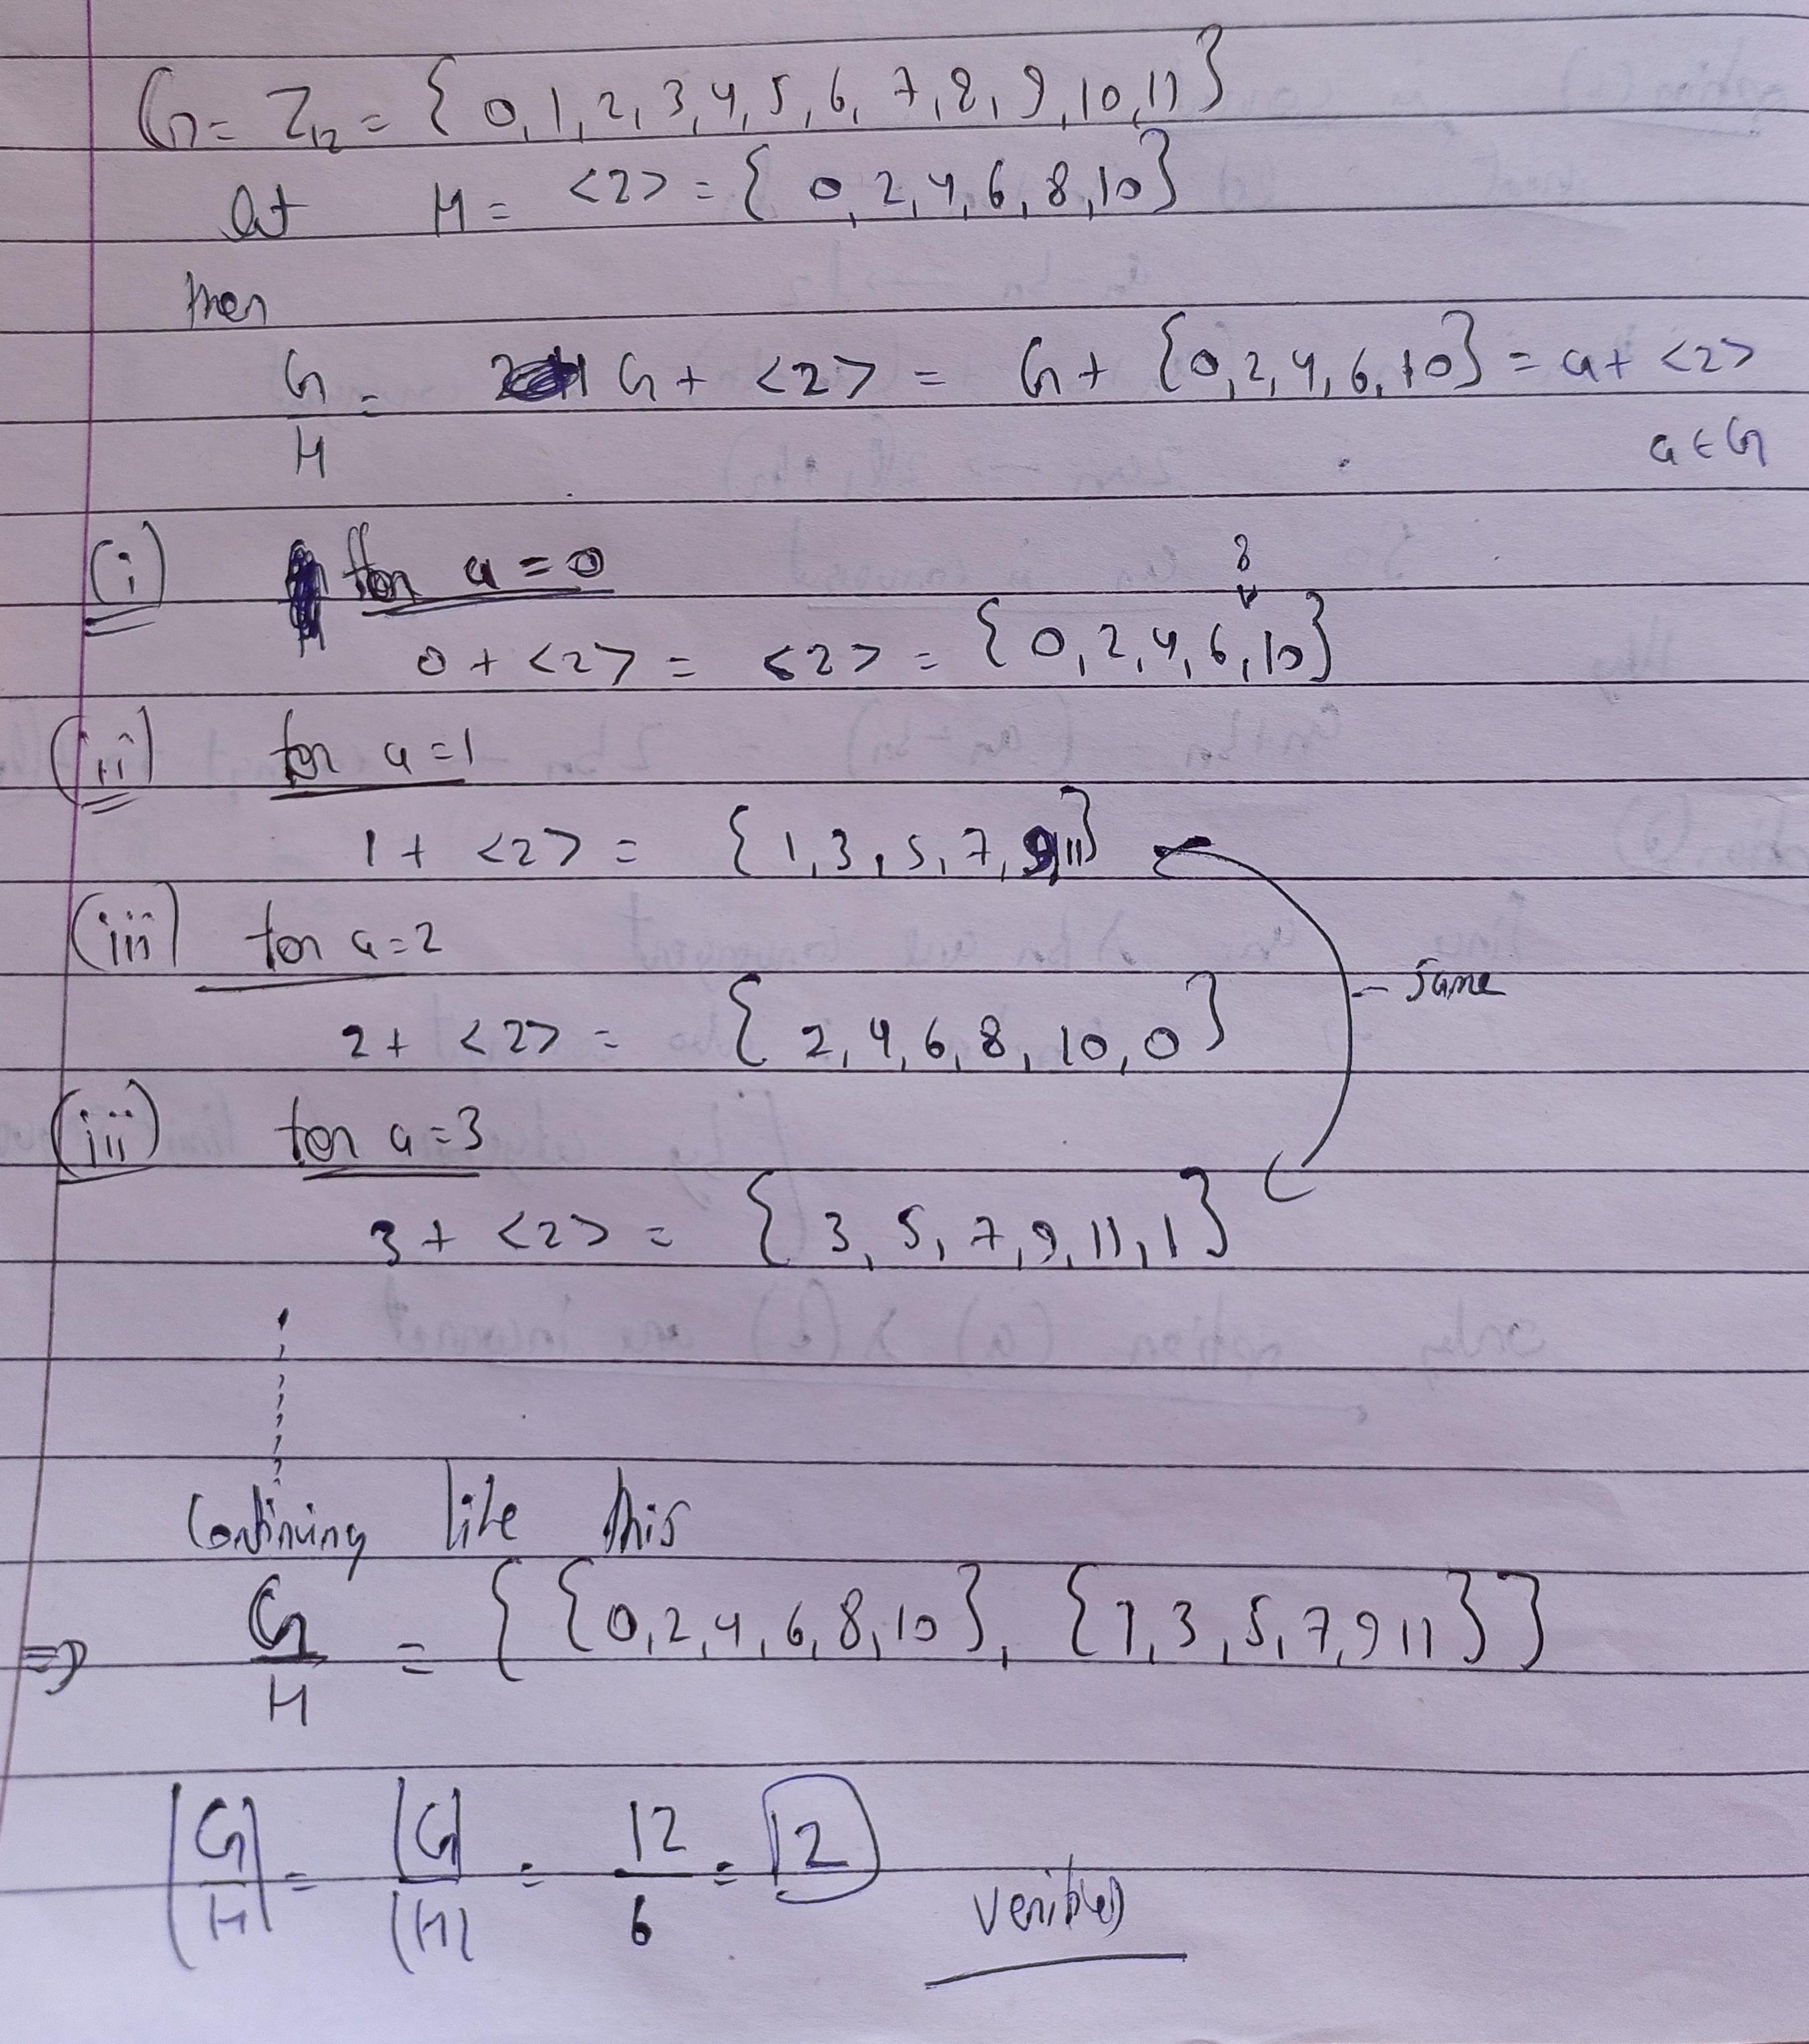 G = Z12 = { 0, 1, 2, 3, 4, 5, 6, 7, 8, 9, 10, 11 }
let H = <2> = { 0, 2, 4, 6, 8, 10 }
then
G/H = G + <2> = G + { 0, 2, 4, 6, 10 } = a + <2>
a ∈ G
(i) for a = 0
8
0 + <2> = <2> = { 0, 2, 4, 6, 10 }
(ii) for a = 1
1 + <2> = { 1, 3, 5, 7, 9, 11 }
(iii) for a = 2
- same
2 + <2> = { 2, 4, 6, 8, 10, 0 }
(iii) for a = 3
3 + <2> = { 3, 5, 7, 9, 11, 1 }
Continuing like this
=> G/H = { { 0, 2, 4, 6, 8, 10 }, { 1, 3, 5, 7, 9 11 } }
|G/H| = |G|/|H| = 12/6 = 2 verified